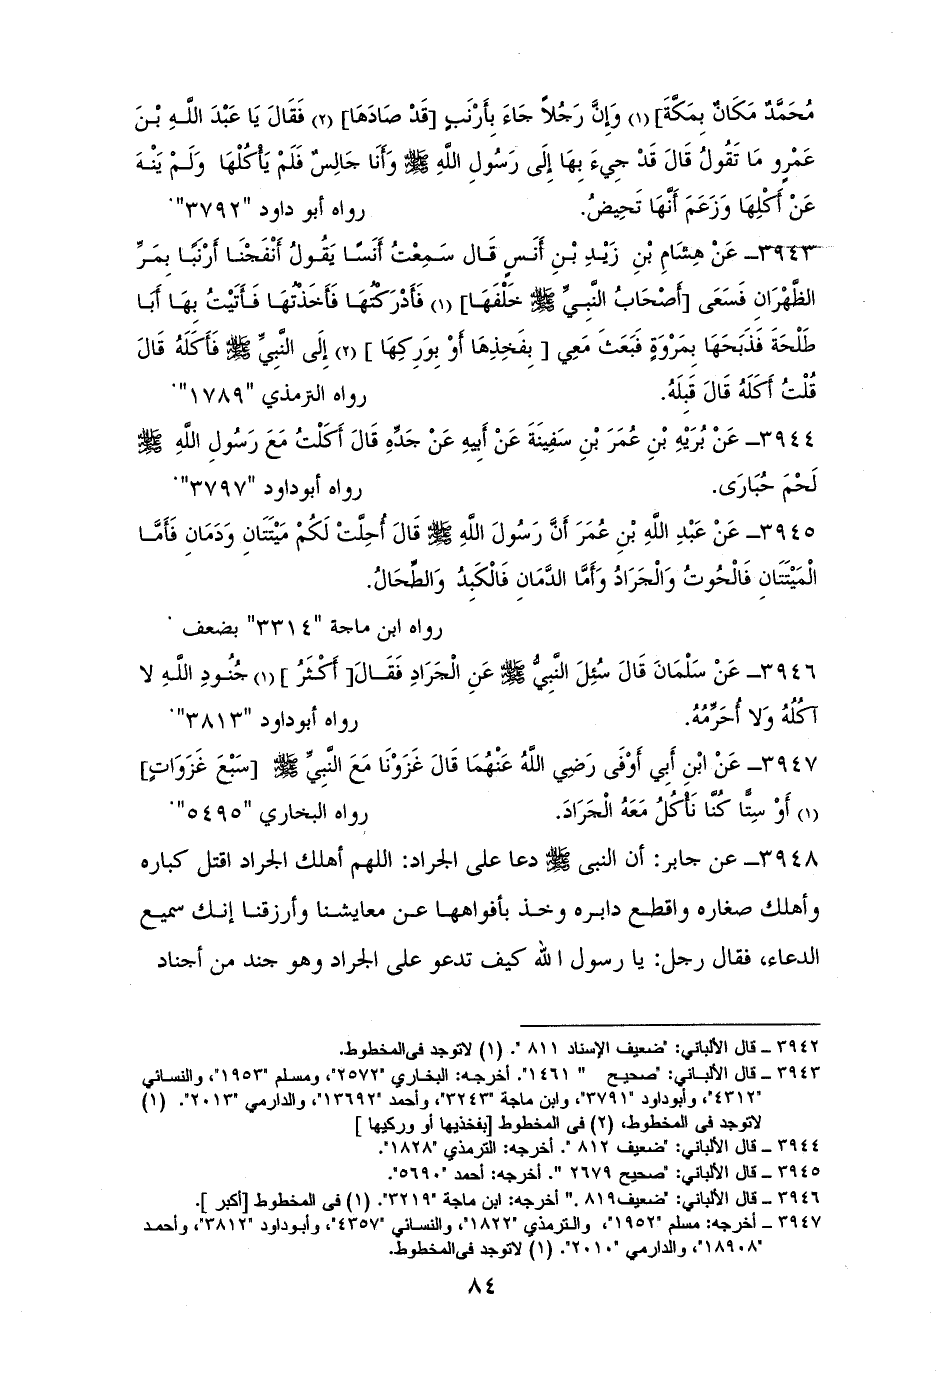 مُحَمَّدٌ مَكَانٌ بِمَكَّةَ] (١) وَإِنَّ رَجُلاً جَاءَ بِأَرْنَبٍ [قَدْ صَادَهَا] (٢) فَقَالَ يَا عَبْدَ اللَّهِ بْنَ
عَمْرٍو مَا تَقُولُ قَالَ قَدْ جِيءَ بِهَا إِلَى رَسُولِ اللَّهِ ﷺ وَأَنَا جَالِسٌ فَلَمْ يَأْكُلْهَا وَلَمْ يَنْهَ
عَنْ أَكْلِهَا وَزَعَمَ أَنَّهَا تَحِيضُ. رواه أبو داود "٣٧٩٢".
٣٩٤٣ـ عَنْ هِشَامِ بْنِ زَيْدِ بْنِ أَنَسٍ قَال سَمِعْتُ أَنَسًا يَقُولُ أَنْفَجْنَا أَرْنَبًا بِمَرِّ
الظَّهْرَانِ فَسَعَى [أَصْحَابُ النَّبِيِّ ﷺ خَلْفَهَا] (١) فَأَدْرَكْتُهَا فَأَخَذْتُهَا فَأَتَيْتُ بِهَا أَبَا
طَلْحَةَ فَذَبَحَهَا بِمَرْوَةٍ فَبَعَثَ مَعِي [ بِفَخِذِهَا أَوْ بِوَرِكِهَا ] (٢) إِلَى النَّبِيِّ ﷺ فَأَكَلَهُ قَالَ
قُلْتُ أَكَلَهُ قَالَ قَبِلَهُ. رواه الترمذي "١٧٨٩".
٣٩٤٤ـ عَنْ بُرَيْهِ بْنِ عُمَرَ بْنِ سَفِينَةَ عَنْ أَبِيهِ عَنْ جَدِّهِ قَالَ أَكَلْتُ مَعَ رَسُولِ اللَّهِ ﷺ
لَحْمَ حُبَارَى. رواه أبوداود "٣٧٩٧".
٣٩٤٥ـ عَنْ عَبْدِ اللَّهِ بْنِ عُمَرَ أَنَّ رَسُولَ اللَّهِ ﷺ قَالَ أُحِلَّتْ لَكُمْ مَيْتَتَانِ وَدَمَانِ فَأَمَّا
الْمَيْتَتَانِ فَالْحُوتُ وَالْجَرَادُ وَأَمَّا الدَّمَانِ فَالْكَبِدُ وَالطِّحَالُ.
رواه ابن ماجة "٣٣١٤" بضعف .
٣٩٤٦ـ عَنْ سَلْمَانَ قَالَ سُئِلَ النَّبِيُّ ﷺ عَنِ الْجَرَادِ فَقَالَ[ أَكْثَرُ ] (١) جُنُودِ اللَّهِ لا
آكُلُهُ وَلا أُحَرِّمُهُ. رواه أبوداود "٣٨١٣".
٣٩٤٧ـ عَنْ ابْنِ أَبِي أَوْفَى رَضِي اللَّهُ عَنْهُمَا قَالَ غَزَوْنَا مَعَ النَّبِيِّ ﷺ [سَبْعَ غَزَوَاتٍ]
(١) أَوْ سِتًّا كُنَّا نَأْكُلُ مَعَهُ الْجَرَادَ. رواه البخاري "٥٤٩٥".
٣٩٤٨ـ عن جابر: أن النبى ﷺ دعا على الجراد: اللهم أهلك الجراد اقتل كباره
وأهلك صغاره واقطع دابره وخذ بأفواهها عن معايشنا وأرزقنا إنك سميع
الدعاء، فقال رجل: يا رسول الله كيف تدعو على الجراد وهو جند من أجناد
٣٩٤٢ ـ قال الألباني: "ضعيف الإسناد ٨١١ ". (١) لاتوجد فى المخطوط.
٣٩٤٣ ـ قال الألباني: "صحيح " ١٤٦١". أخرجه: البخاري "٢٥٧٢"، ومسلم "١٩٥٣"، والنسائي
"٤٣١٢"، وأبوداود "٣٧٩١"، وابن ماجة "٣٢٤٣"، وأحمد "١٣٦٩٢"، والدارمي "٢٠١٣". (١)
لاتوجد فى المخطوط، (٢) فى المخطوط [بفخذيها أو وركيها ]
٣٩٤٤ ـ قال الألباني: "ضعيف ٨١٢ ". أخرجه: الترمذي "١٨٢٨".
٣٩٤٥ ـ قال الألباني: "صحيح ٢٦٧٩ ". أخرجه: أحمد "٥٦٩٠".
٣٩٤٦ ـ قال الألباني: "ضعيف٨١٩ ." أخرجه: ابن ماجة "٣٢١٩". (١) فى المخطوط [أكبر ].
٣٩٤٧ ـ أخرجه: مسلم "١٩٥٢"، والترمذي "١٨٢٢"، والنسائي "٤٣٥٧"، وأبوداود "٣٨١٢"، وأحمد
"١٨٩٠٨"، والدارمي "٢٠١٠". (١) لاتوجد فى المخطوط.
٨٤